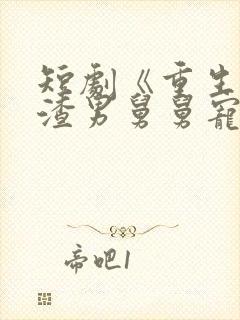 短劇《重生
渣男舅舅寵
帝吧1